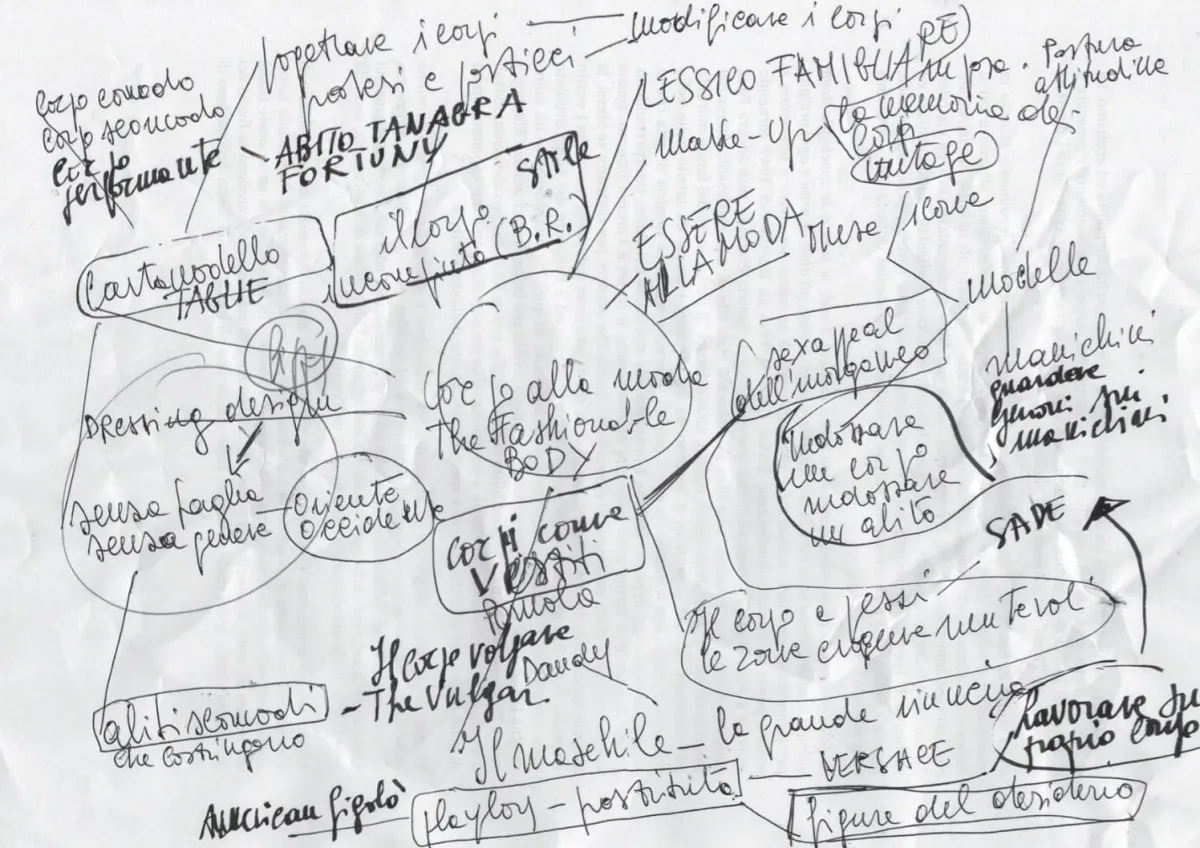 progettare i corpi
modificare i corpi
protesi e posticci
corpo comodo
corpo scomodo
corpo
performante
ABITO TANAGRA
FORTUNY
LESSICO FAMIGLIARE
in posa. Postura
attitudine
Make-up
la memoria del
corpo
vintage
STILE
il corpo
incompiuto (B.R.)
Cartamodello
TAGLIE
ESSERE
ALLA MODA
muse
icone
modelle
sexappeal
dell'inorganico
manichini
guardare
sui
manichini
Dressing design
corpo alla moda
The Fashionable
BODY
indossare
un corpo
indossare
un abito
senza taglia
senza genere
Oriente
Occidente
corpi come
vestiti
SADE
Il corpo a pezzi
le zone erogene
Il corpo volgare
The Vulgar.
Dandy
abiti scomodi
che costringono
Il maschile - la grande rinuncia
Lavorare sul
proprio corpo
VERSACE
American gigolò
playboy - prostituta
figure del desiderio